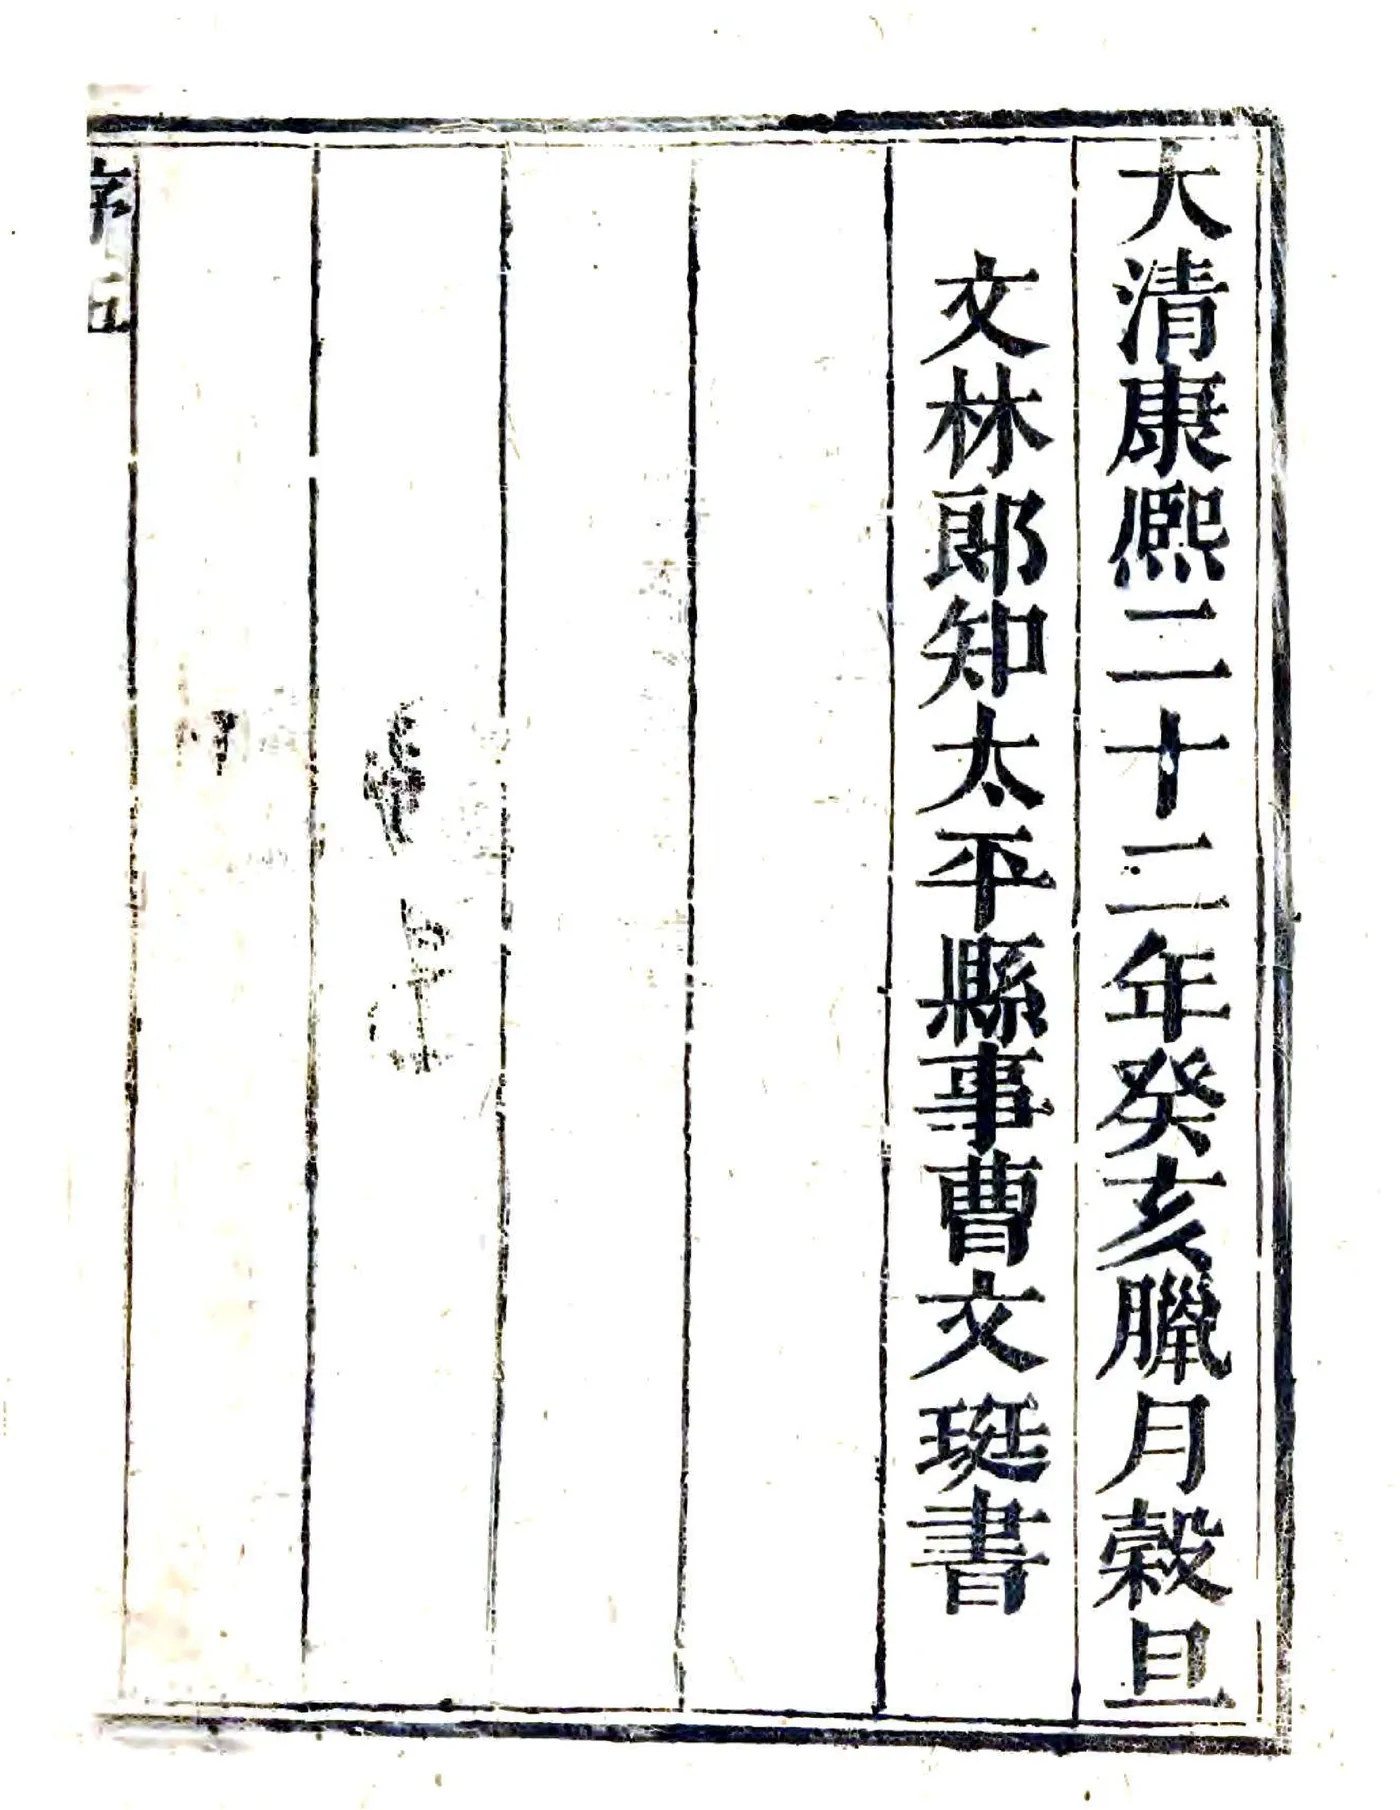 大清康熙二十二年癸亥臘月穀旦
文林郎知太平縣事曹文珽書
序 五